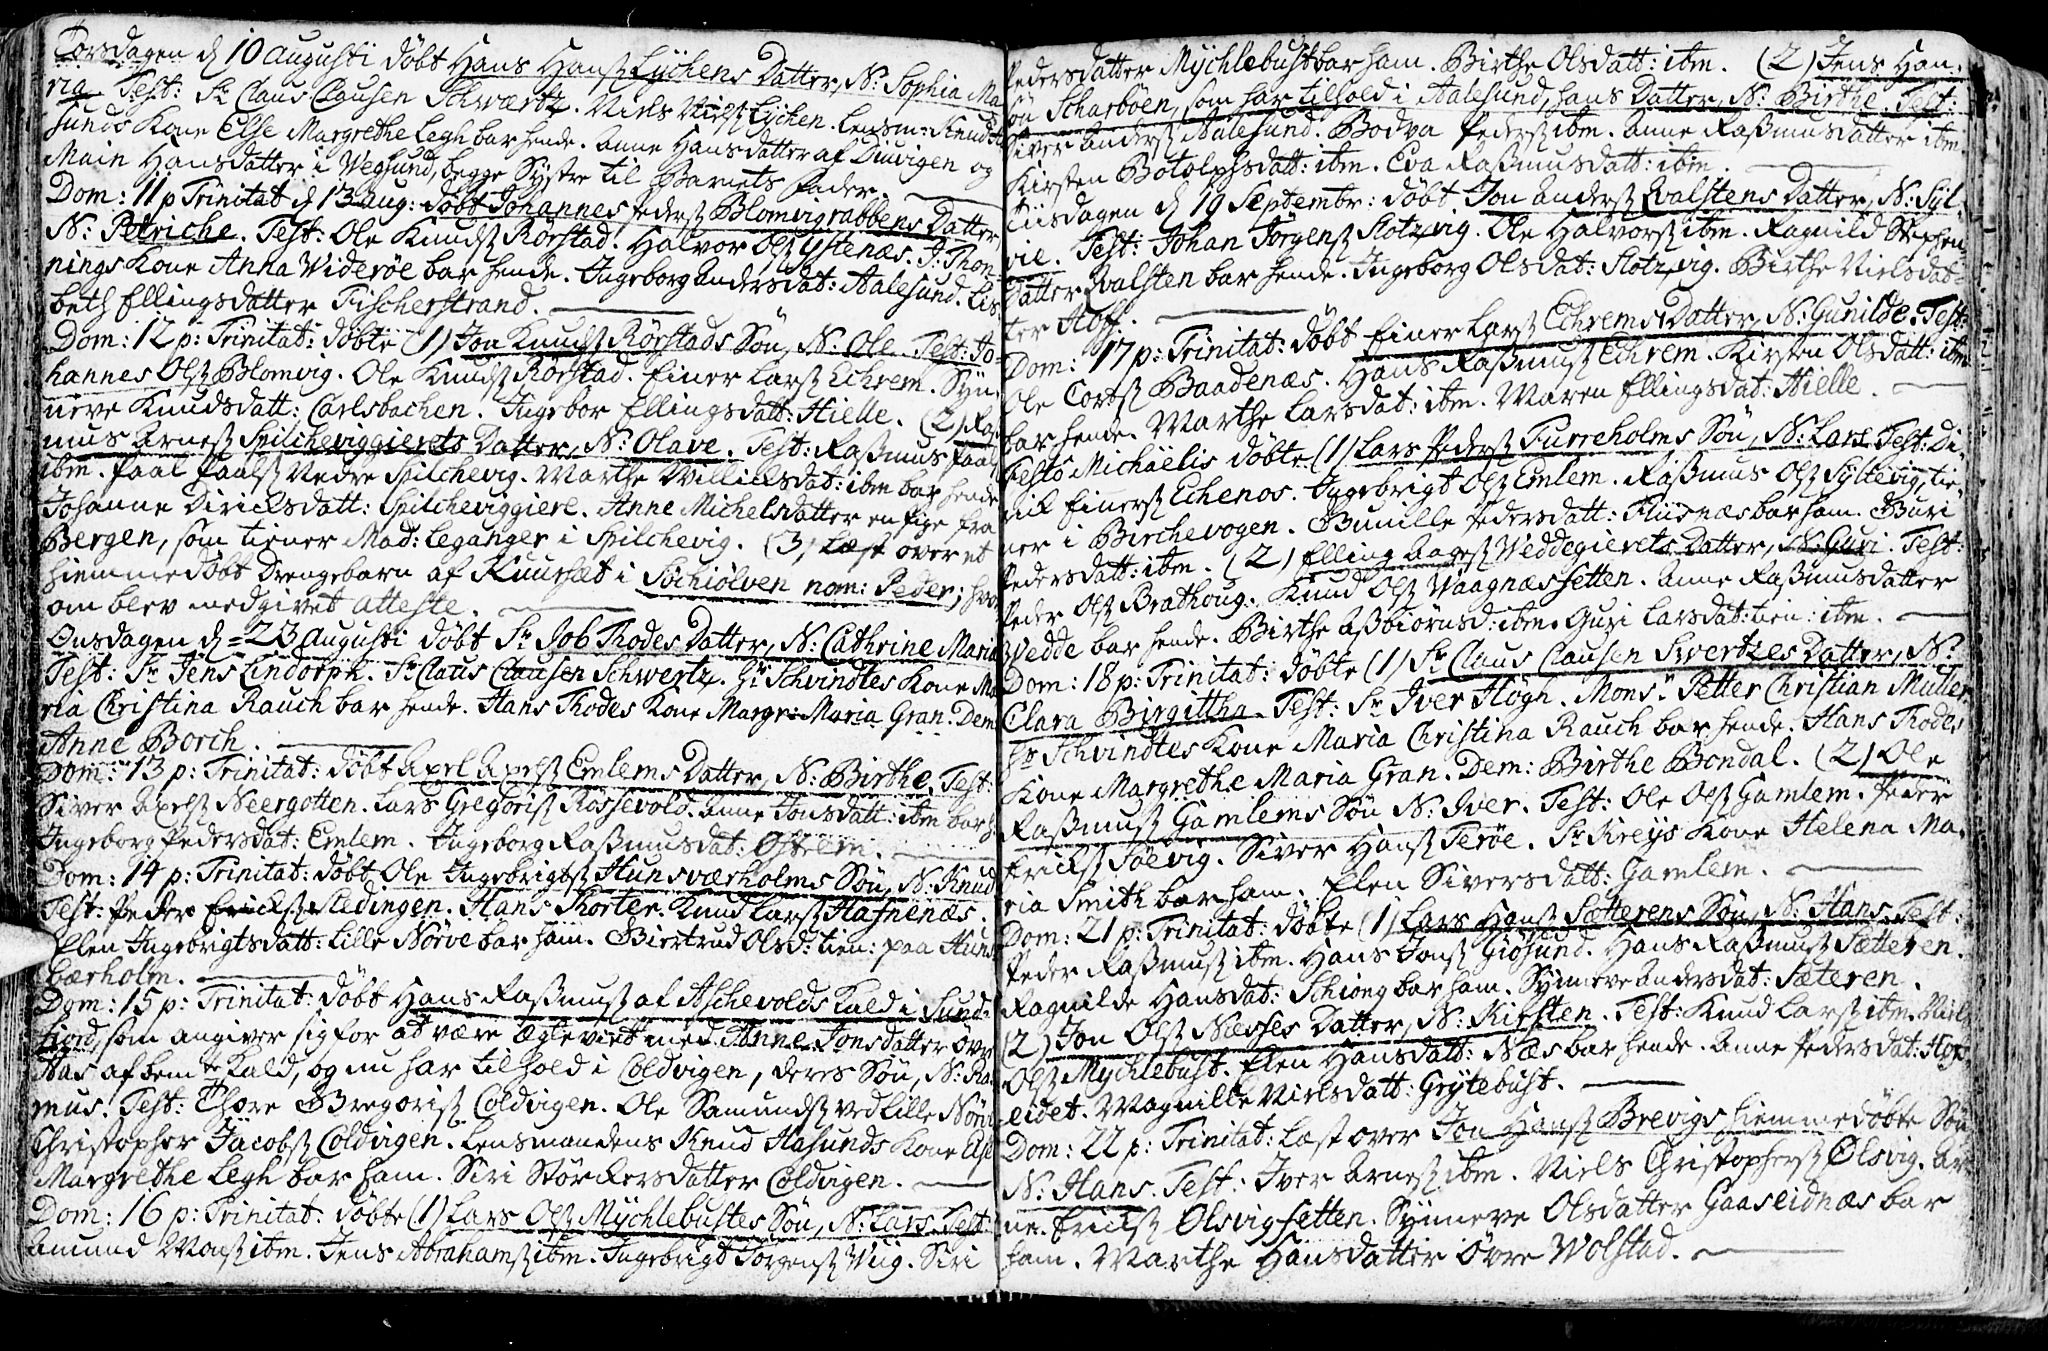 Torsdagen d 10 Augusti döbt Hans Hansz Lyckens Datter, N: Sophia Ma
ria. Test: Sr Claus Clausen Schwærtz. Niels Nielsz Lycken. Lensm: Knud Ha
sunds Kone Else Margrethe Legh bar hende. Anne Hansdatter af Diuvigen og
Main Hansdatter i Wegsund, begge Systre til Barnets Fader.
Dom: 11 p Trinitat d 13 Aug: döbt Johannes Pedersz Blomvigrabbens Datter,
N: Petriche. Test: Ole Knudsz Rörstad. Halvor Olsz Ystenæs. J. Thon-
nings Kone Anna Wideröe bar hende. Ingeborg Andersdat: Aalesund. Lis
beth Ellingsdatter Fischerstrand.
Dom: 12 p: Trinitat: döbte (1) Jon Knudsz Rörstads Sön, N: Ole. Test: Jo-
hannes Olsz Blomvig. Ole Knudsz Rörstad. Einer Larsz Echrem. Syn-
neve Knudsdatt: Carlsbachen. Ingebor Ellingsdatt: Hielle. (2) Ras
mus Arnesz Spilcheviggierets Datter, N: Olave. Test: Rasmus Paalsz
ibm. Paal Paalsz Nedre Spilchevig. Marthe Willichsdat: ibm bar hende
Johanne Diricksdatt: Spilcheviggiere. Anne Michelsdatter en Pige fra
Bergen, som tiener Mad: Leganger i Spilchevig. (3) Læst over et
hiemmedöbt Drengebarn af Kuursæt i Söchiölven nom: Peder; hvor
om blev medgivet atteste.
Onsdagen d = 23 Augusti döbt Sr Job Thodes Datter, N: Cathrine Maria
Test: Sr Jens Lindorph. Sr Claus Clausen Schwertz. Hr Schvindtes Kone Ma
ria Christina Rauch bar hende. Hans Thodes Kone Margr: Maria Gran. Dem:
Anne Borch.
Dom: 13 p: Trinitat: döbt Axel Axelsz Emlems Datter, N: Birthe. Test:
Siver Axelsz Neergotten. Lars Gregorisz Rössevold. Anne Jonsdatt: ibm bar h
Ingeborg Pedersdat: Emlem. Ingeborg Rasmusdat: Ostrem.
Dom: 14 p: Trinitat: döbt Ole Ingebrigtsz Hunsværholms Sön, N: Knud
Test: Peder Ericksz Stedingen. Hans Thorter. Knud Larsz Hafnenæs.
Elen Ingebrigtsdatt: Lille Nörve bar ham. Biertrud Olsd: tien: paa Huns
værholm.
Dom: 15 p: Trinitat: döbt Hans Rasmusz af Aschevolds Kald i Sund-
fiord, som angiver sig for at være Ægteviet med Anne Jonsdatter övre
Aas af bemte Kald, og nu har tilhold i Coldvigen, deres Sön, N: Ra
mus. Test: Thore Gregorisz Coldvigen. Ole Samundsz ved Lille Nörv
Christopher Jacobsz Coldvigen. Lensmandens Knud Hasunds Kone Else
Margrethe Legh bar ham. Siri Störkersdatter Coldvigen.
Dom: 16 p: Trinitat: döbte (1) Lars Olsz Mychlebustes Sön, N: Lars. Test:
Amund Monsz ibm. Jens Abrahamsz ibm. Ingebrigt Jörgensz Wiig. Siri
Pedersdatter Mychlebust bar ham. Birthe Olsdatt: ibm. (2) Jens Han-
sön Scharböen, som har tilhold i Aalesund, hans Datter, N: Birthe. Test:
Siver Andersz Aalesund. Bodva Pedersz ibm. Anne Rasmusdatter ibm.
Kirsten Botolphsdatt: ibm. Eva Rasmusdatt: ibm.
Tiisdagen d 19 Septembr: döbt Jon Andersz Qvalstens Datter, N: Syl-
vie. Test: Johan Jörgensz Slotzvig. Ole Halvorsz ibm. Ragnild Stephens
Datter Qvalsten bar hende. Ingeborg Olsdat: Slotzvig. Birthe Nielsdat-
ter Hoff.
Dom: 17 p: Trinitat: döbt Einer Larsz Echrems Datter, N: Gunilde. Test:
Ole Cortsz Baadenæs. Hans Rasmusz Echrem. Kirsten Olsdatt: ibm
bar hende. Marthe Larsdat: ibm. Maren Ellingsdat: Hielle.
Festo Michaëlis döbte (1) Lars Pedersz Furreholms Sön, N: Lars. Test: Di-
rick Einersz Echenos. Ingebrigt Olsz Emlem. Rasmus Olsz Syltevig, tie-
ner i Birchevogen. Gunille Pedersdatt: Fliisnæs bar ham. Guri
Pedersdatt: ibm. (2) Elling Aagesz Weddegierets Datter, N: Guri. Test:
Peder Olsz Brathoug. Knud Olsz Waagnæssetten. Anne Rasmusdatter
Wedde bar hende. Birthe Asbiörnsd: ibm. Guri Larsdat: tien: ibm.
Dom: 18 p: Trinitat: döbte (1) Sr Claus Clausen Svertzes Datter, N:
Clara Birgittha. Test: Sr Iver Högh. Monsr Petter Christian Muller
Hr Schvindtes Kone Maria Christina Rauch bar hende. Hans Thodes
Kone Margrethe Maria Gran. Dem: Birthe Bondal. (2) Ole
Rasmusz Gamlems Sön N: Iver. Test: Ole Olsz Gamlem. Peder
Ericksz Söevig. Siver Hansz Teröe. Sr Kreys Kone Helena Ma-
ria Smith bar ham. Elen Siversdatt: Gamlem.
Dom: 21 p: Trinitat: döbte (1) Lars Hansz Sætterens Sön, N: Hans. Test:
Peder Rasmusz ibm. Hans Jonsz Giösund. Hans Rasmusz Sætteren.
Ragnilde Hansdat: Schiong bar ham. Synneve Andersdat: Sæteren.
(2) Jon Olsz Næsses Datter, N: Kirsten. Test: Knud Larsz ibm. Niels
Olsz Mychlebust. Elen Hansdatt: Næs bar hende. Anne Pedersdat: Hops
eidet. Magnille Nielsdatt: Grytebust.
Dom: 22 p: Trinitat: Læst over Jon Hansz Brevigs hiemmedöbte Sön
N: Hans. Test: Iver Arnesz ibm. Niels Christophersz Ölsvig. Ar
ne Ericksz Ölsvigsetten. Synneve Olsdatter Gaaseidnæs bar
ham. Marthe Hansdatter Övre Wolstad.